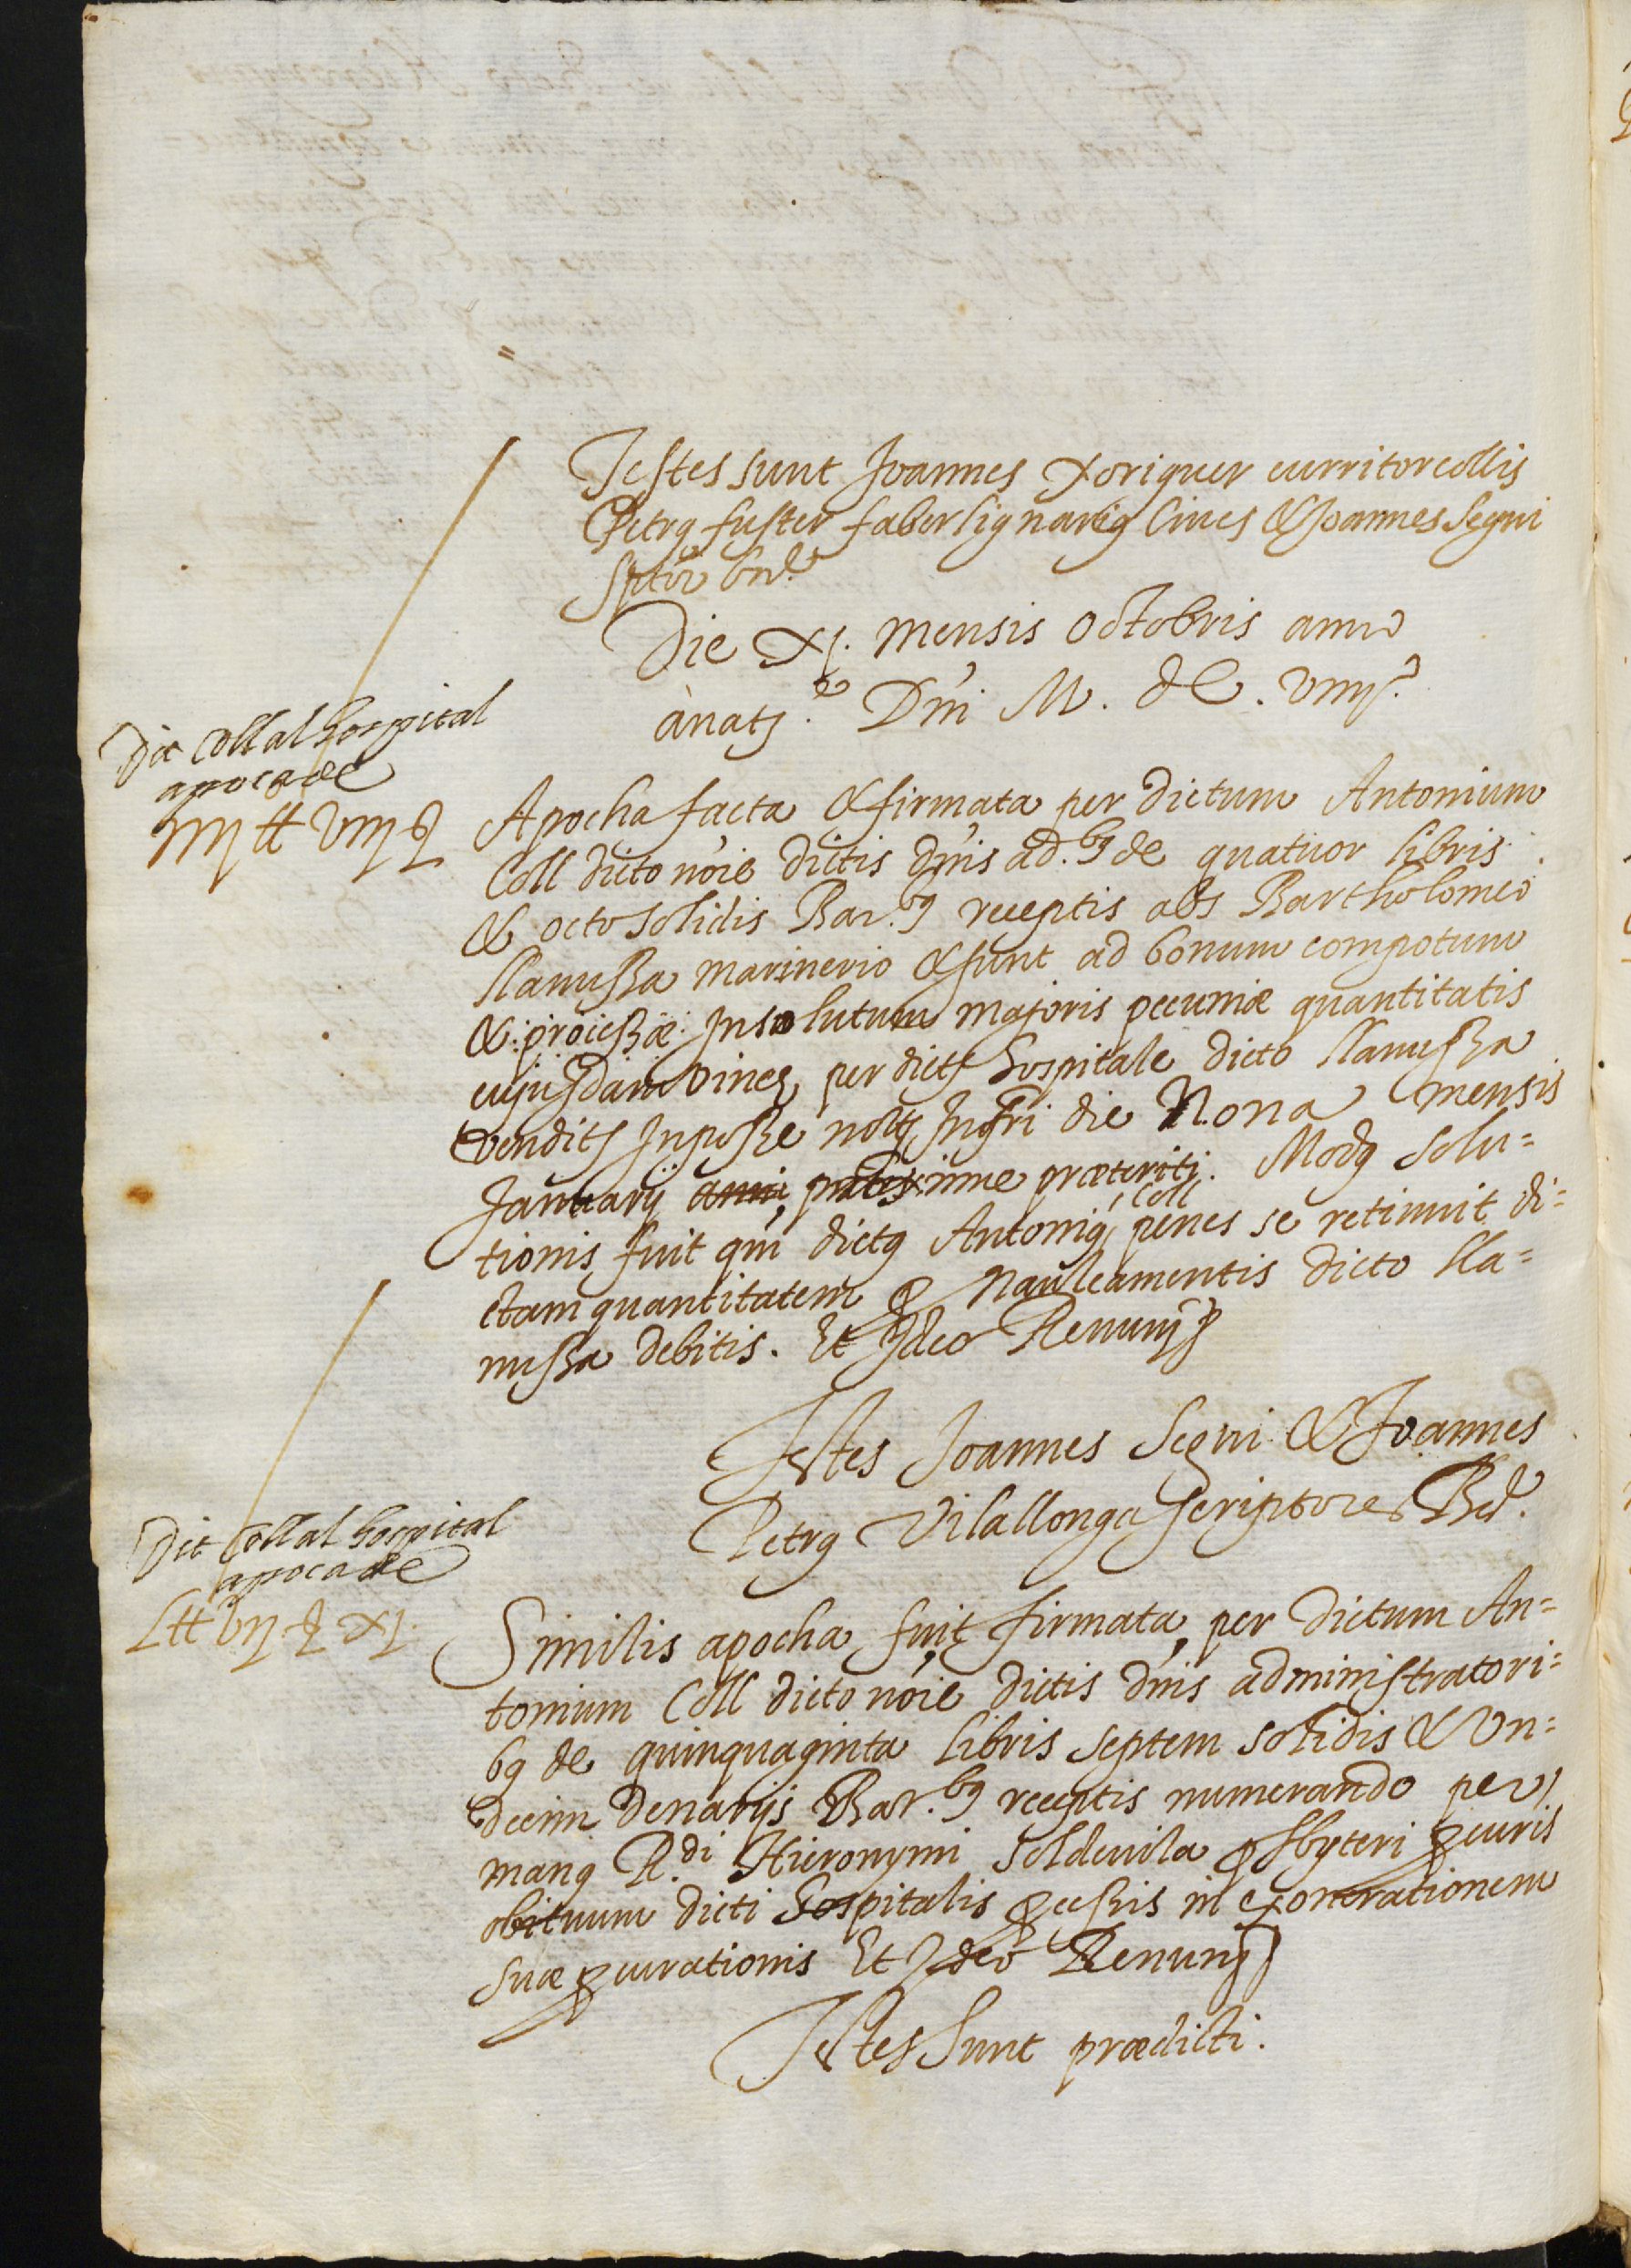 Testes sunt Joannes Xoriguer curritor collis
Petrꝰ fuster faber lignariꝰ Cives & Joannes Segui
Sptōr bnē.
Die xj. mensis octobris anno
à natē. Dnī M. dC. viiij.º
Dit Coll al hospital
apoca de
iiij ℔ viij ȿ
Apocha facta & firmata per dictum Antonium
Coll dicto nōie dictis dnīs ad.bꝰ de quatuor libris
& octo solidis Bar.bꝰ receptis abs Bartholomeo
Llanussa marinerio & sunt ad bonum compotum
& : pro ieße : In solutum majoris pecuniæ quantitatis
cujusdam vineę per dictū hospitale dicto Llanussa
venditę In posse notj Infrī die Nona mensis
Januarij anni proxime præteriti. Modꝰ solu=
tionis fuit qm̄ dictꝰ Antoniꝰ Coll penes se retinuit di=
ctam quantitatem ꝓ Nauleamentis dicto Lla=
nussa debitis. Et Ideo Renunꝯ
Testes Joannes Segui & Joannes
Petrꝰ Vilallonga scriptores Bē.
Dit Coll al hospital
apoca de
L ℔ vij ȿ xj.
Similis apocha fuit firmata per dictum An=
tonium Coll dicto nōie dictis dnīs administratori=
bꝰ de quinquaginta libris septem solidis & un=
decim denarijs Bar.bꝰ receptis numerando per
manꝰ R.di Hieronymi Soldevila ꝓsbyteri ꝓcuris
obituum dicti hospitalis ꝓcessis in exonerationem
suæ ꝓcurationis Et Ideo Renunꝯ
Testes sunt prædicti.